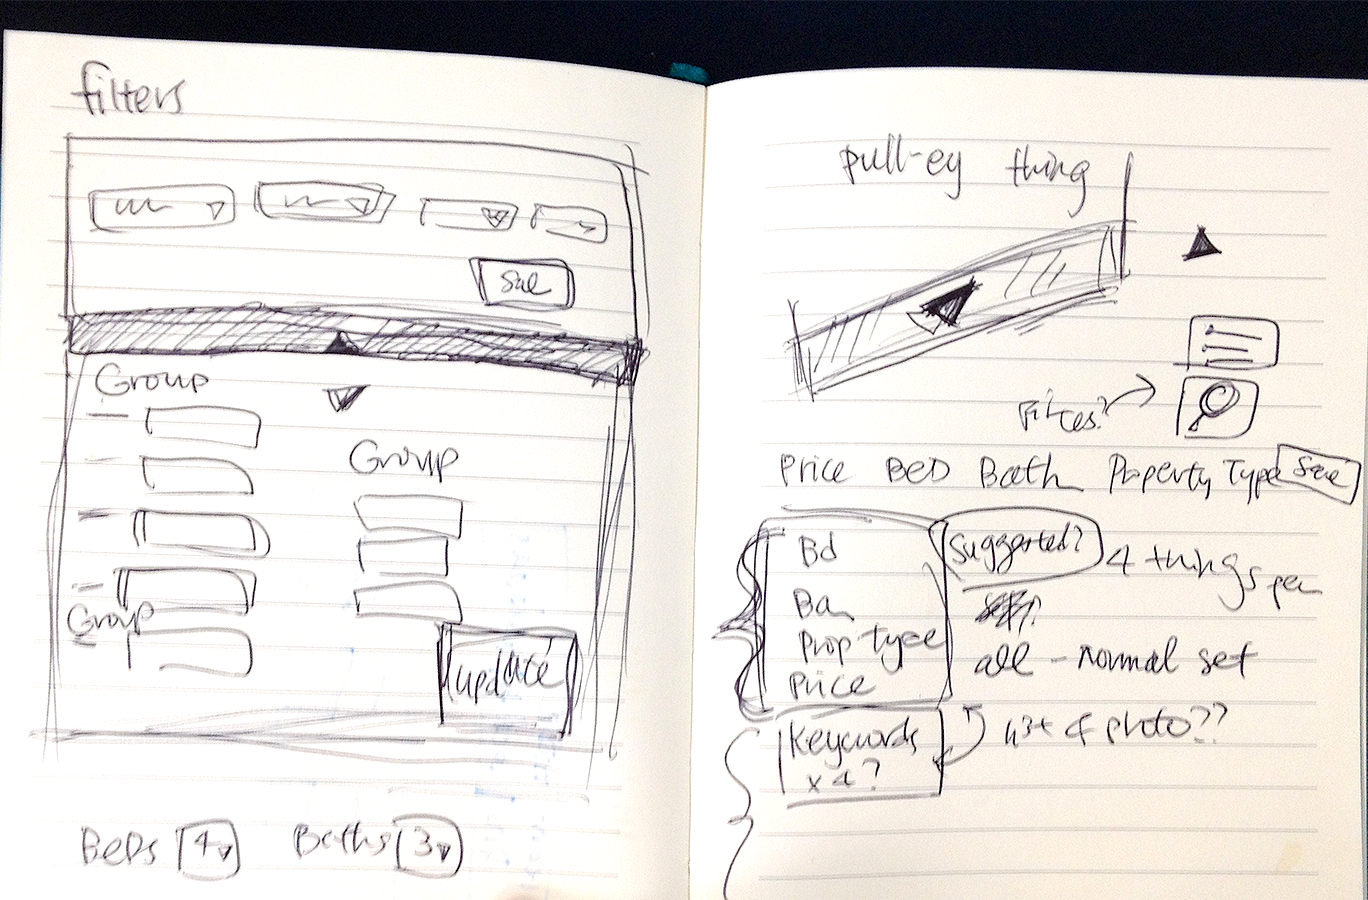 filters
Group
Group
Group
update
BEDs 4
Baths 3
pull-ey thing
Price BED Bath Property Type
Bd
Ba
Prop type
Price
Suggested?
4 things per
all - normal set
Keywords
x 4?
photo??